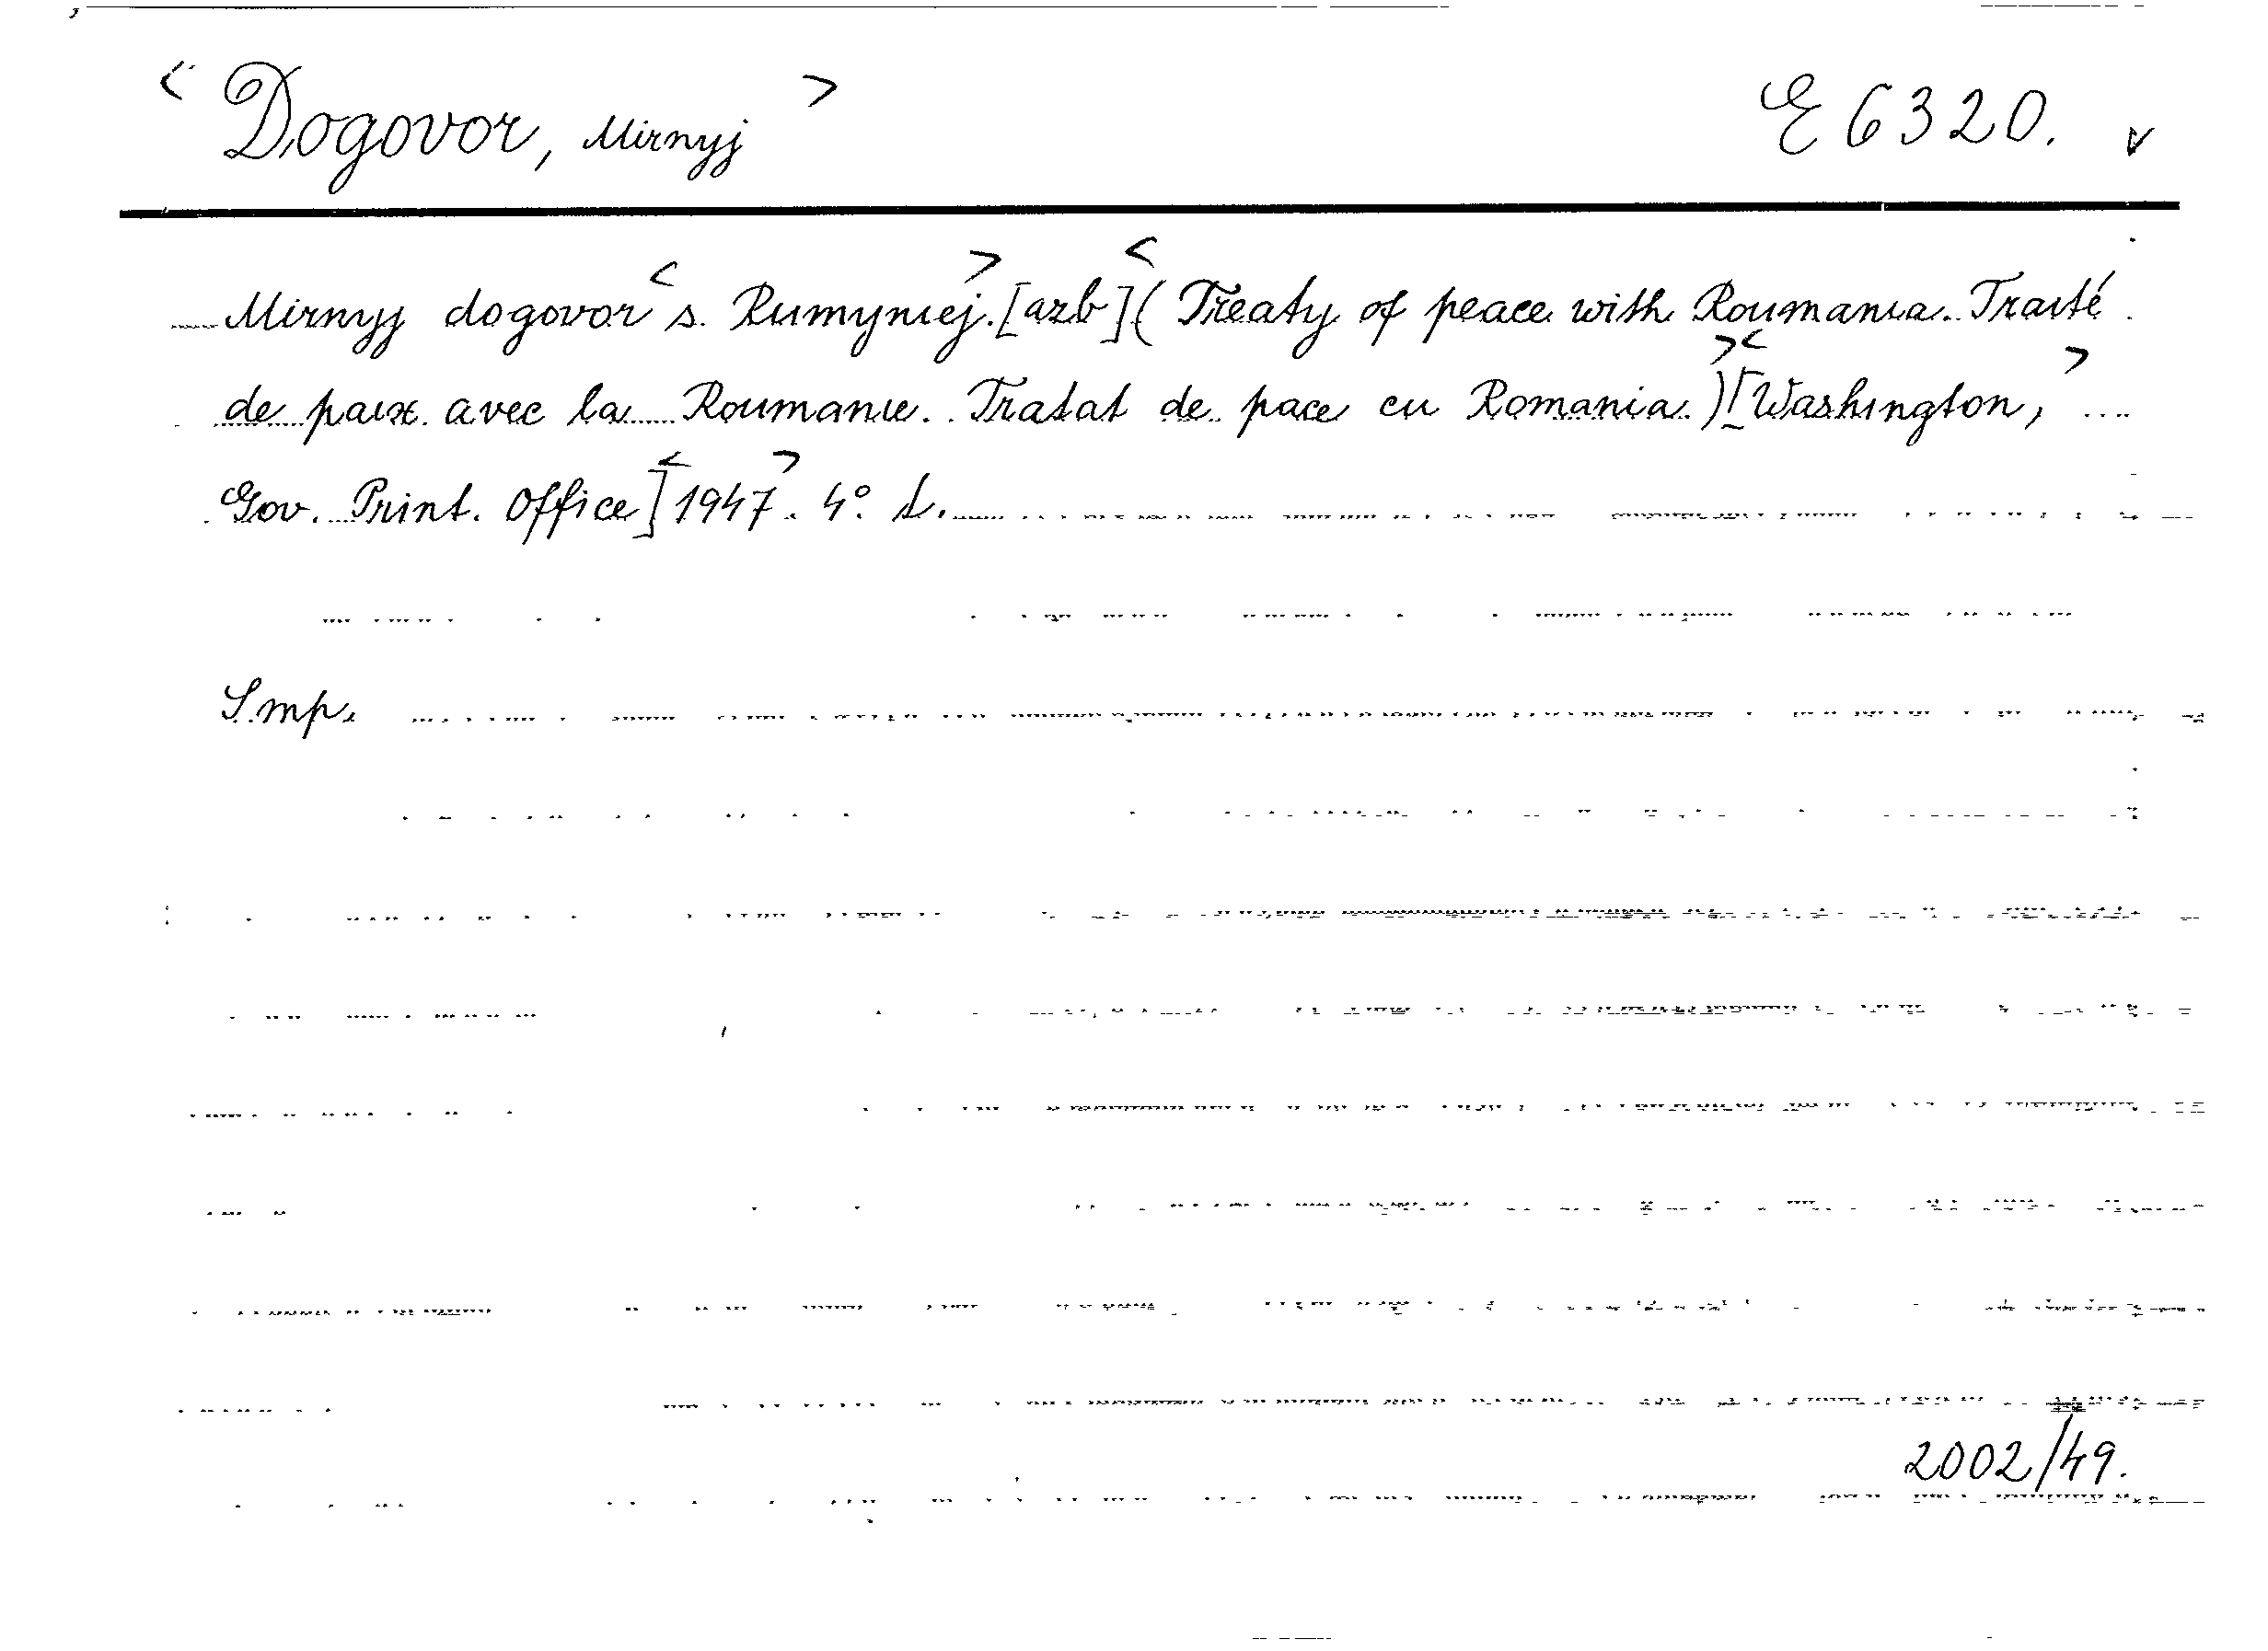 < Dogovor, Mirnyj > E 6320. v
Mirnyj dogovor < s. Rumyniej. > [azb] < (Treaty of peace with Roumania. Traité
de paix avec la Roumanie. Tratat de pace cu Romania.) > < [Washington, >
Gov. Print. Office] < 1947 >. 4°.
S.mp.
2002/49.